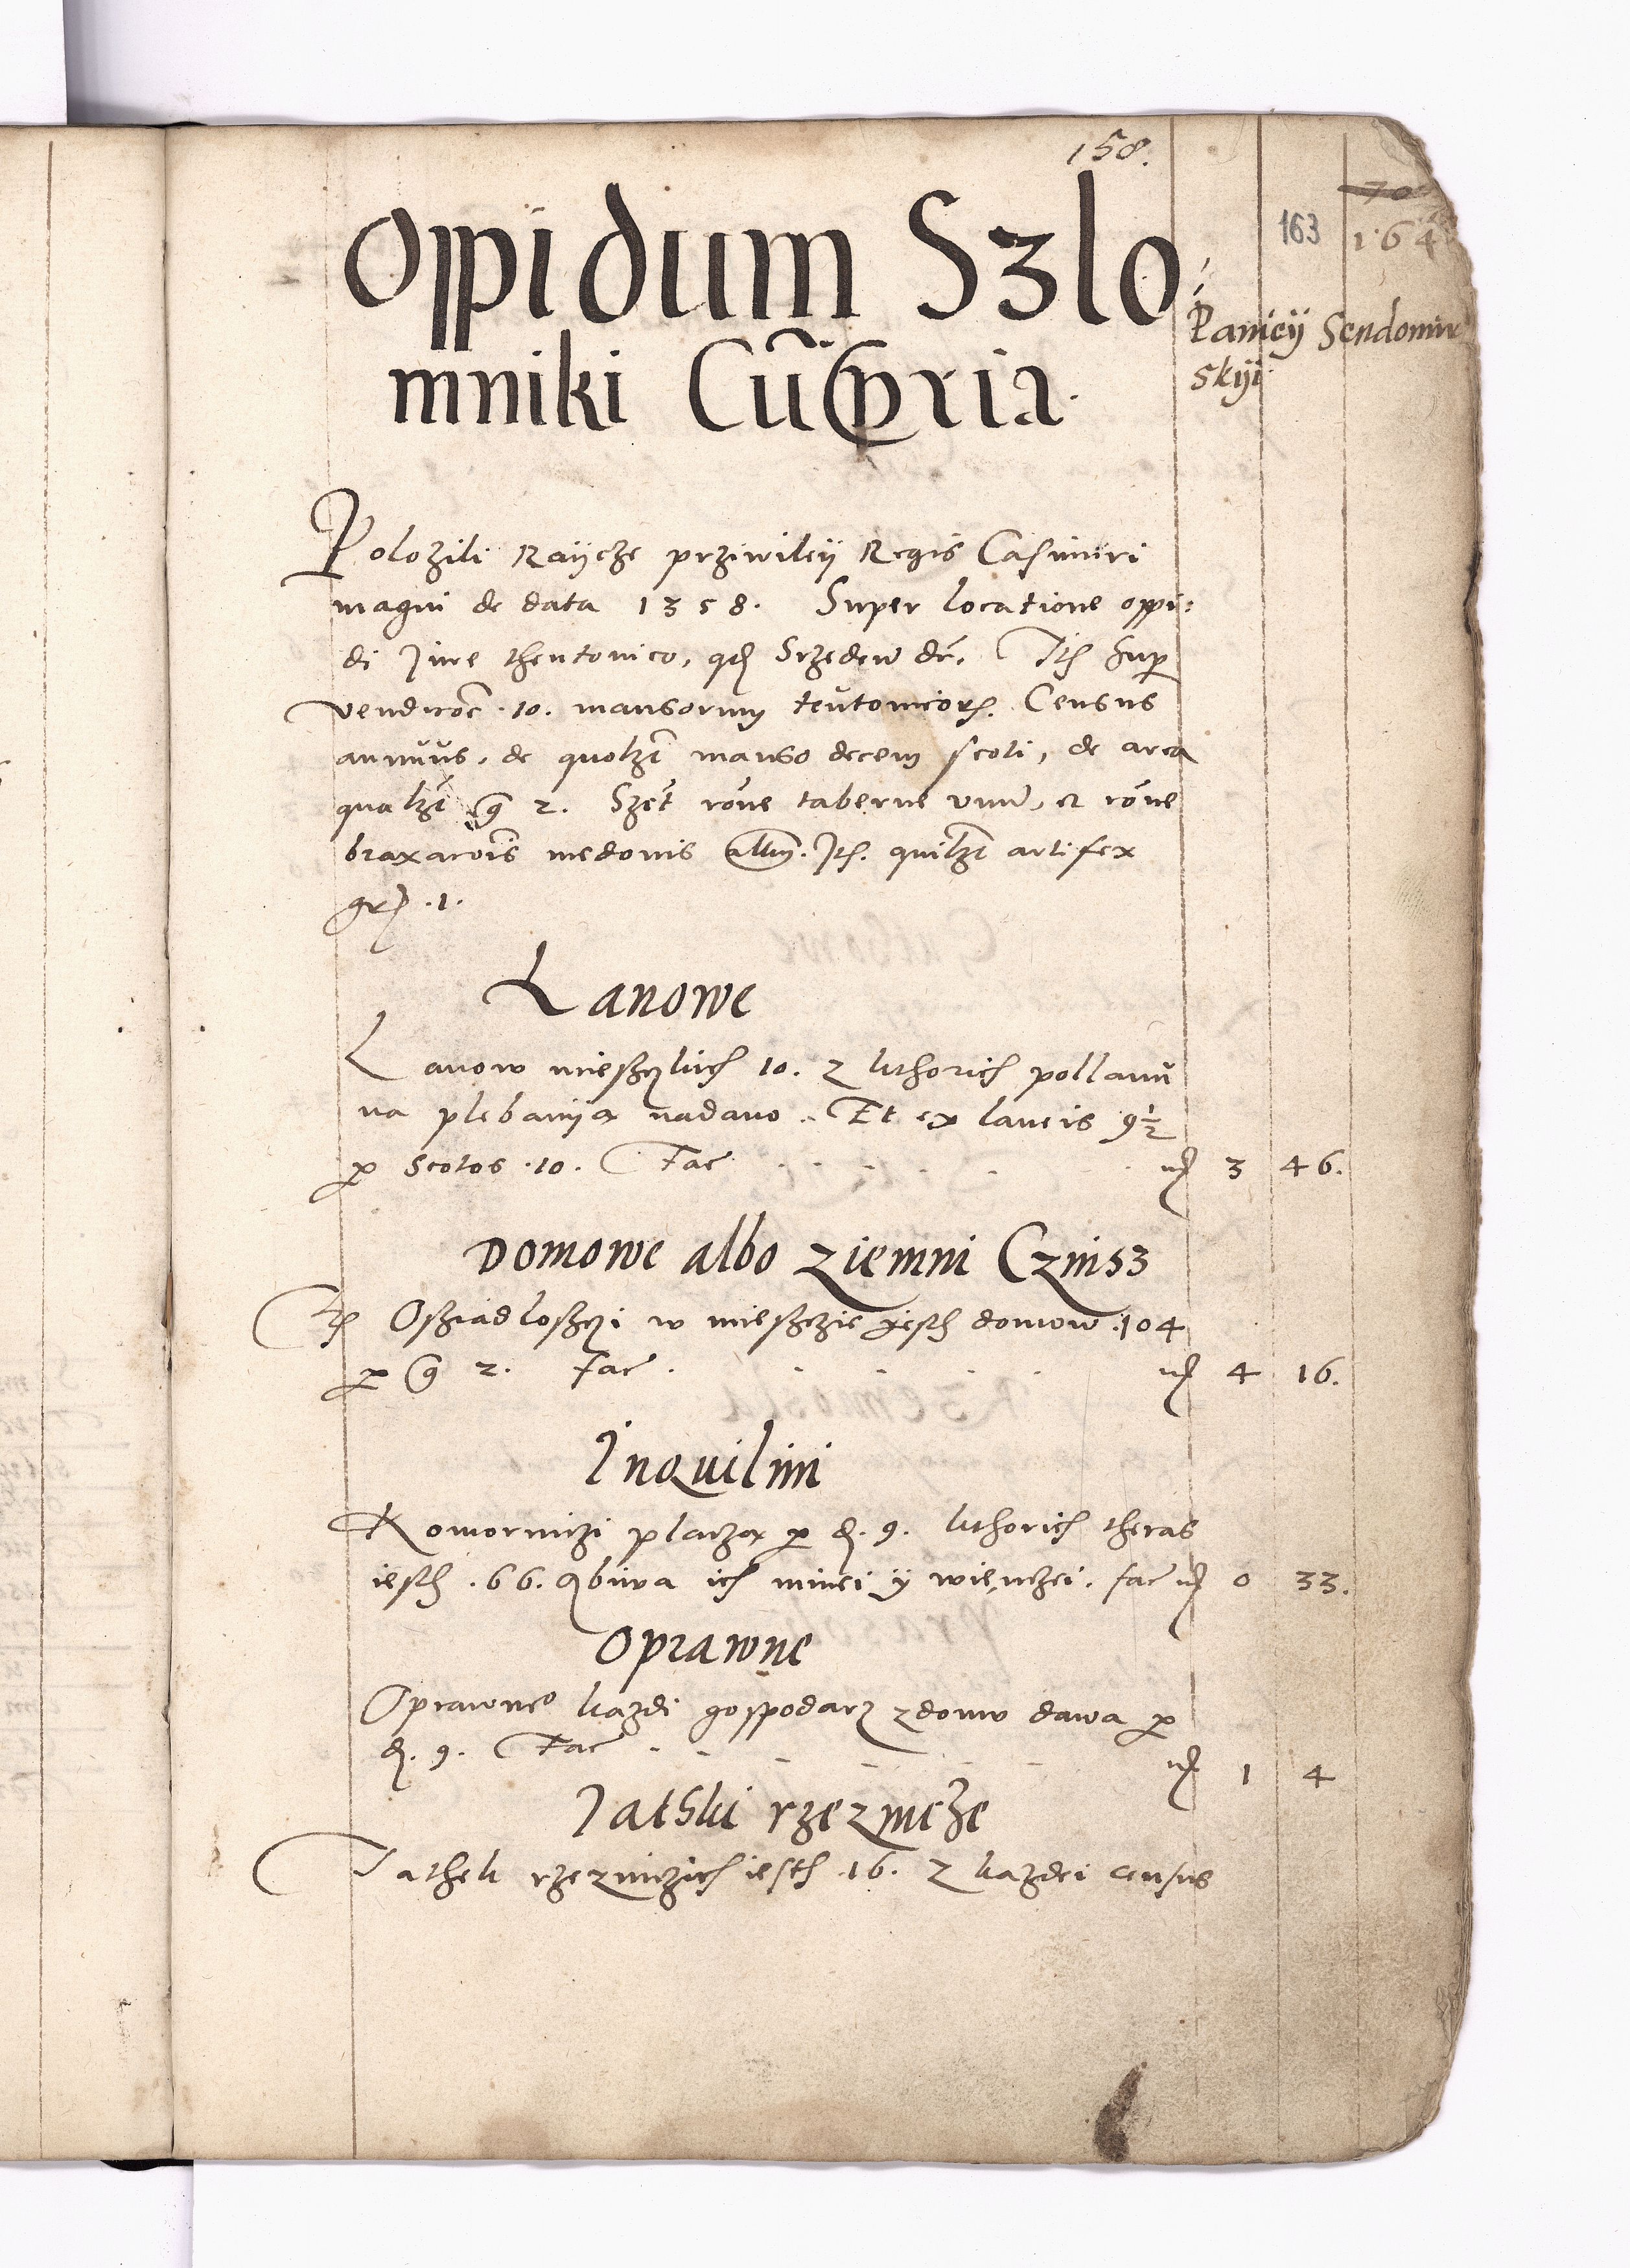 158.
70
163 164
Oppidum Szlo:
mniki Cũ Cõpria.
Panieÿ Sendomir
skÿi
Polozili Raÿcze prziwileÿ Regis Casimiri
magni de data 1358. Super locatione oppi:
di Jure theutonico, qđ Srzedew dr̃. Itē Sup
vendicōe .10. mansorum teutonicorꝝ. Census
annuus, de quolzt manso decem scoti, de area
qualzt g 2. Szet rōne taberne vnũ, et rōne
braxacōis medonis altm̃. Itē. quilzt artifex
grꝭ .1.
Lanowe
Lanow mieskich 10. z kthorich pollanu
na plebaniją nadano. Et ex laneis 9½
ꝑ Scotos .10. Fac mꝭ 3 46.
Domowe albo ziemni Cznisz
Itē Osziadloszczi w miesczie jesth domow .104
ꝑ g 2. fac. mꝭ 4 16.
Inquilini
Komorniczi placzą ꝑ đ. 9. kthorich theras
iesth .66. Abiwa ich mniei ÿ więnczei. fac mꝭ 0 33.
Oprawne
Oprawneo kazdi gospodarz zdomu dawa ꝑ
đ. 9. Fac mꝭ 1 4
Jatski rzezniche
Jathek rzezniczich iesth .16. z kazdei census